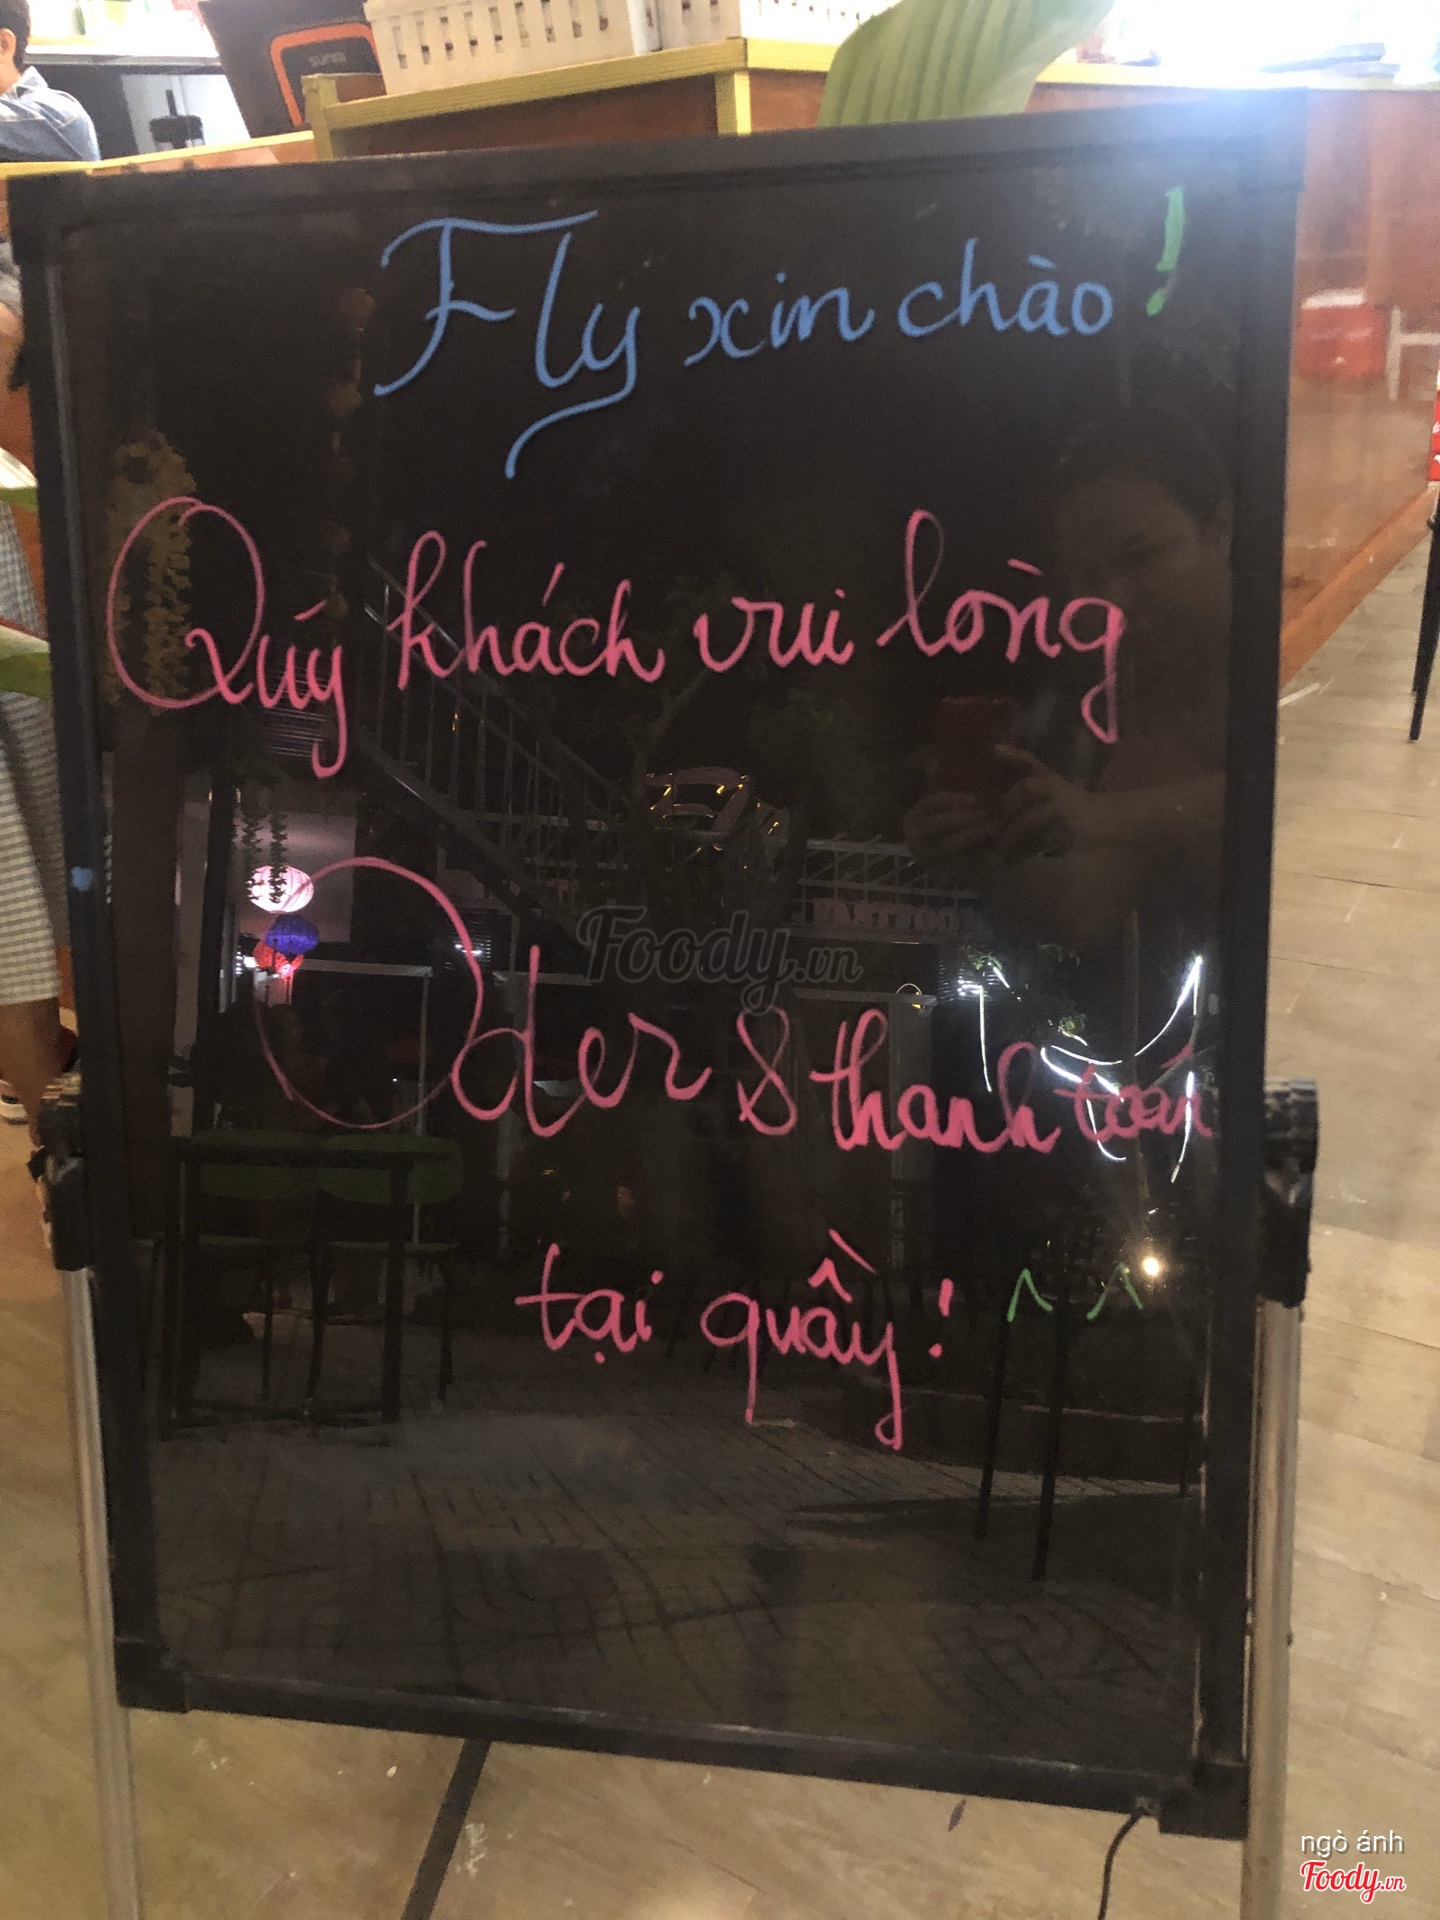 sunmi
Fly xin chào!
Quý khách vui lòng
Oder & thanh toán
tại quầy! ^ ^
Foody.vn
ngò ánh
Foody.vn